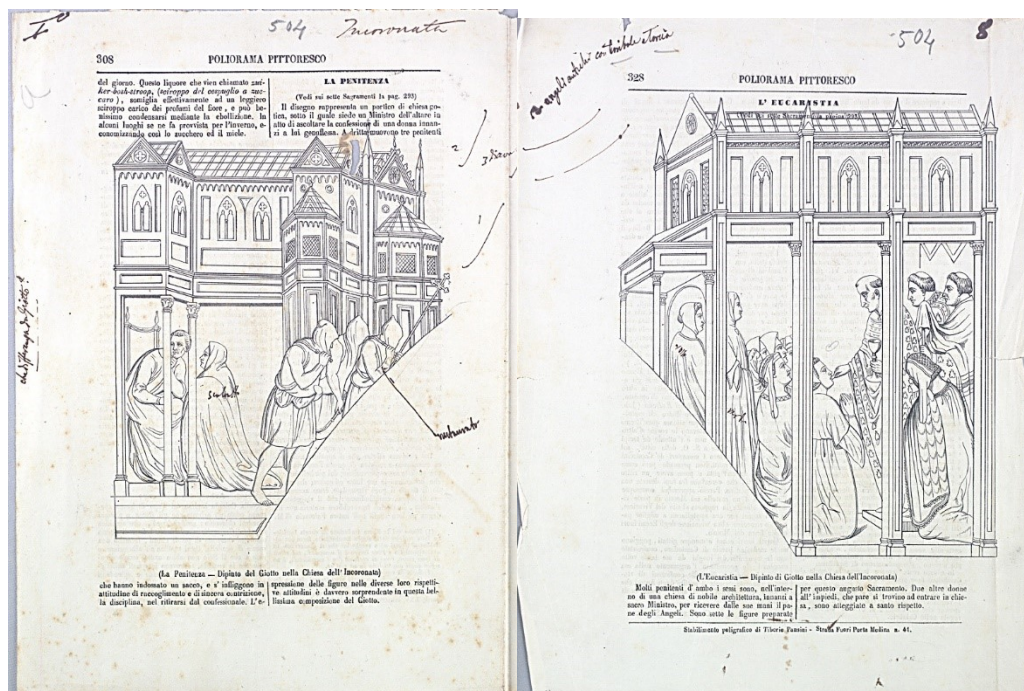 I°
504
Incoronata
308
POLIORAMA PITTORESCO
del giorno. Questo liquore che vien chiamato zui-
ker-bosh-stroop, (sciroppo del cespuglio a zuc-
caro), somiglia effettivamente ad un leggiero
sciroppo carico dei profumi del fiore, e può be-
nissimo condensarsi mediante la ebollizione. In
alcuni luoghi se ne fa provvista per l'inverno, e-
conomizzando così lo zucchero ed il miele.
LA PENITENZA
(Vedi sui sette Sacramenti la pag. 293)
Il disegno rappresenta un portico di chiesa go-
tica, sotto il quale siede un Ministro dell'altare in
atto di ascoltare la confessione di una donna innan-
zi a lui genuflessa. A dritta muovono tre penitenti
2
1
restaurato
(La Penitenza — Dipinto del Giotto nella Chiesa dell'Incoronata)
che hanno indossato un sacco, e s'infliggono in
attitudine di raccoglimento e di sincera contrizione,
la disciplina, nel ritirarsi dal confessionale. L'e-
spressione delle figure nelle diverse loro rispetti-
ve attitudini è davvero sorprendente in questa bel-
lissima composizione del Giotto.
504
8
2 angeli antichi con
328
POLIORAMA PITTORESCO
L'EUCARISTIA
(Vedi sui sette Sacramenti la pagina 293)
(L'Eucaristia — Dipinto di Giotto nella Chiesa dell'Incoronata)
Molti penitenti d'ambo i sessi sono, nell'inter-
no di una chiesa di nobile architettura, innanzi a
sacro Ministro, per ricevere dalle sue mani il pa-
ne degli Angeli. Sono sette le figure preparate
per questo augusto Sacramento. Due altre donne
all'impiedi, che par si trovino ad entrare in chie-
sa, sono atteggiate a santo rispetto.
Stabilimento poligrafico di Tiberio Pansini - Strada Fuori Porta Medina n. 41.